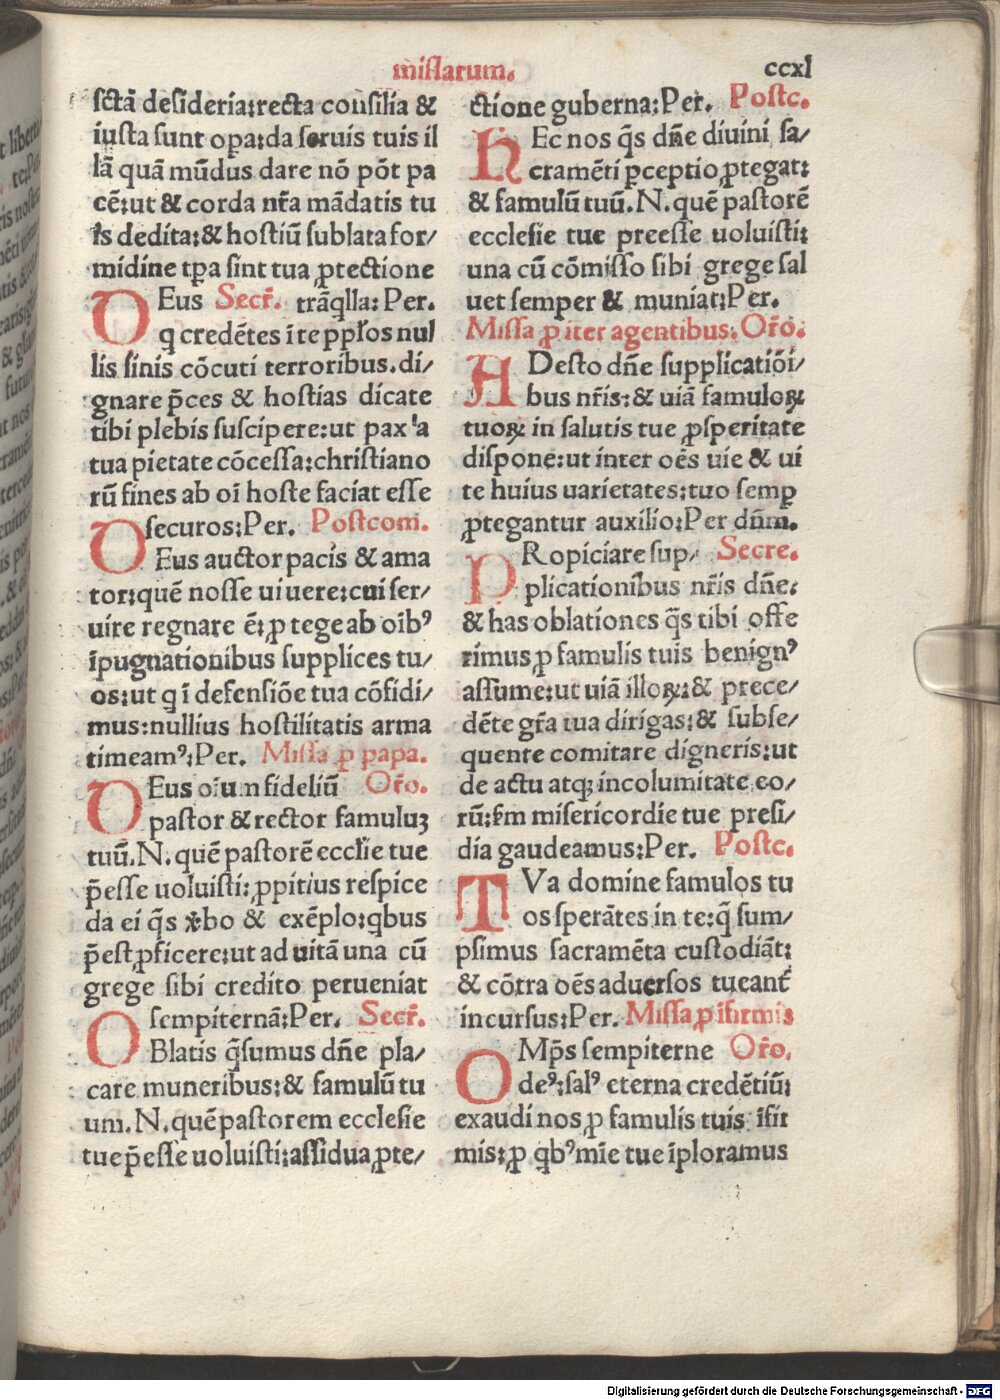 missarum.
ccxl
sctā desideria: recta consilia &
iusta sunt opa: da seruis tuis il
lā quā mūdus dare nō pōt pa
cē: ut & corda nr̄a mādatis tu
is dedita: & hostiū sublata for/
midine tꝑa sint tua ꝓtectione
DEus Secr̄. trāq̇lla: Per.
q credētes ī te ppl̄os nul
lis sinis cōcuti terroribus. di/
gnare p̄ces & hostias dicate
tibi plebis suscipere: ut pax 'a
tua pietate cōcessa: christiano
rū fines ab oī hoste faciat esse
securos: Per. Postcom.
DEus auctor pacis & ama
tor: quē nosse uiuere: cui ser/
uire regnare ē: ꝓtege ab oībꝰ
īpugnationibus supplices tu/
os: ut q ī defensiōe tua cōfidi/
mus: nullius hostilitatis arma
timeamꝰ: Per. Missa ꝓ papa.
DEus oium fideliū Or̄o.
pastor & rector famuluꝫ
tuū. N. quē pastorē eccl̄ie tue
p̄esse uoluisti: ꝓpitius respice
da ei q̄s x̄bo & exēplo: qbus
p̄est ꝓficere: ut ad uitā una cū
grege sibi credito perueniat
sempiternā: Per. Secr̄.
OBlatis q̄sumus dn̄e pla/
care muneribus: & famulū tu
um. N. quē pastorem ecclesie
tue p̄esse uoluisti: assidua ꝓte/
ctione guberna: Per. Postc.
HEc nos q̄s dn̄e diuini sa/
cramēti ꝑceptio ꝓtegat:
& famulū tuū. N. quē pastorē
ecclesie tue preesse uoluisti:
una cū cōmisso sibi grege sal
uet semper & muniat: Per.
Missa ꝓ iter agentibus. Or̄o.
ADesto dn̄e supplicatiōi/
bus nr̄is: & uiā famuloꝝ
tuoꝝ in salutis tue ꝓsperitate
dispone: ut inter oēs uie & ui
te huius uarietates: tuo semꝑ
ꝓtegantur auxilio: Per dn̄m.
PRopiciare sup/ Secre.
plicationibus nr̄is dn̄e:
& has oblationes q̄s tibi offe
rimus ꝓ famulis tuis benignꝰ
assume: ut uiā illoꝝ: & prece/
dēte gr̄a tua dirigas: & subse/
quente comitare digneris: ut
de actu atqꝫ incolumitate eo/
rū: s̄m misericordie tue presi/
dia gaudeamus: Per. Postc.
TVa domine famulos tu
os sperātes in te: q̄ sum/
psimus sacramēta custodiāt:
& cōtra oēs aduersos tueant̄
incursus: Per. Missa ꝓ īfirmis
OMp̄s sempiterne Or̄o.
deꝰ: salꝰ eterna credētiū:
exaudi nos ꝓ famulis tuis īfir
mis: ꝓ qbꝰ mīe tue īploramus
Digitalisierung gefördert durch die Deutsche Forschungsgemeinschaft - DFG